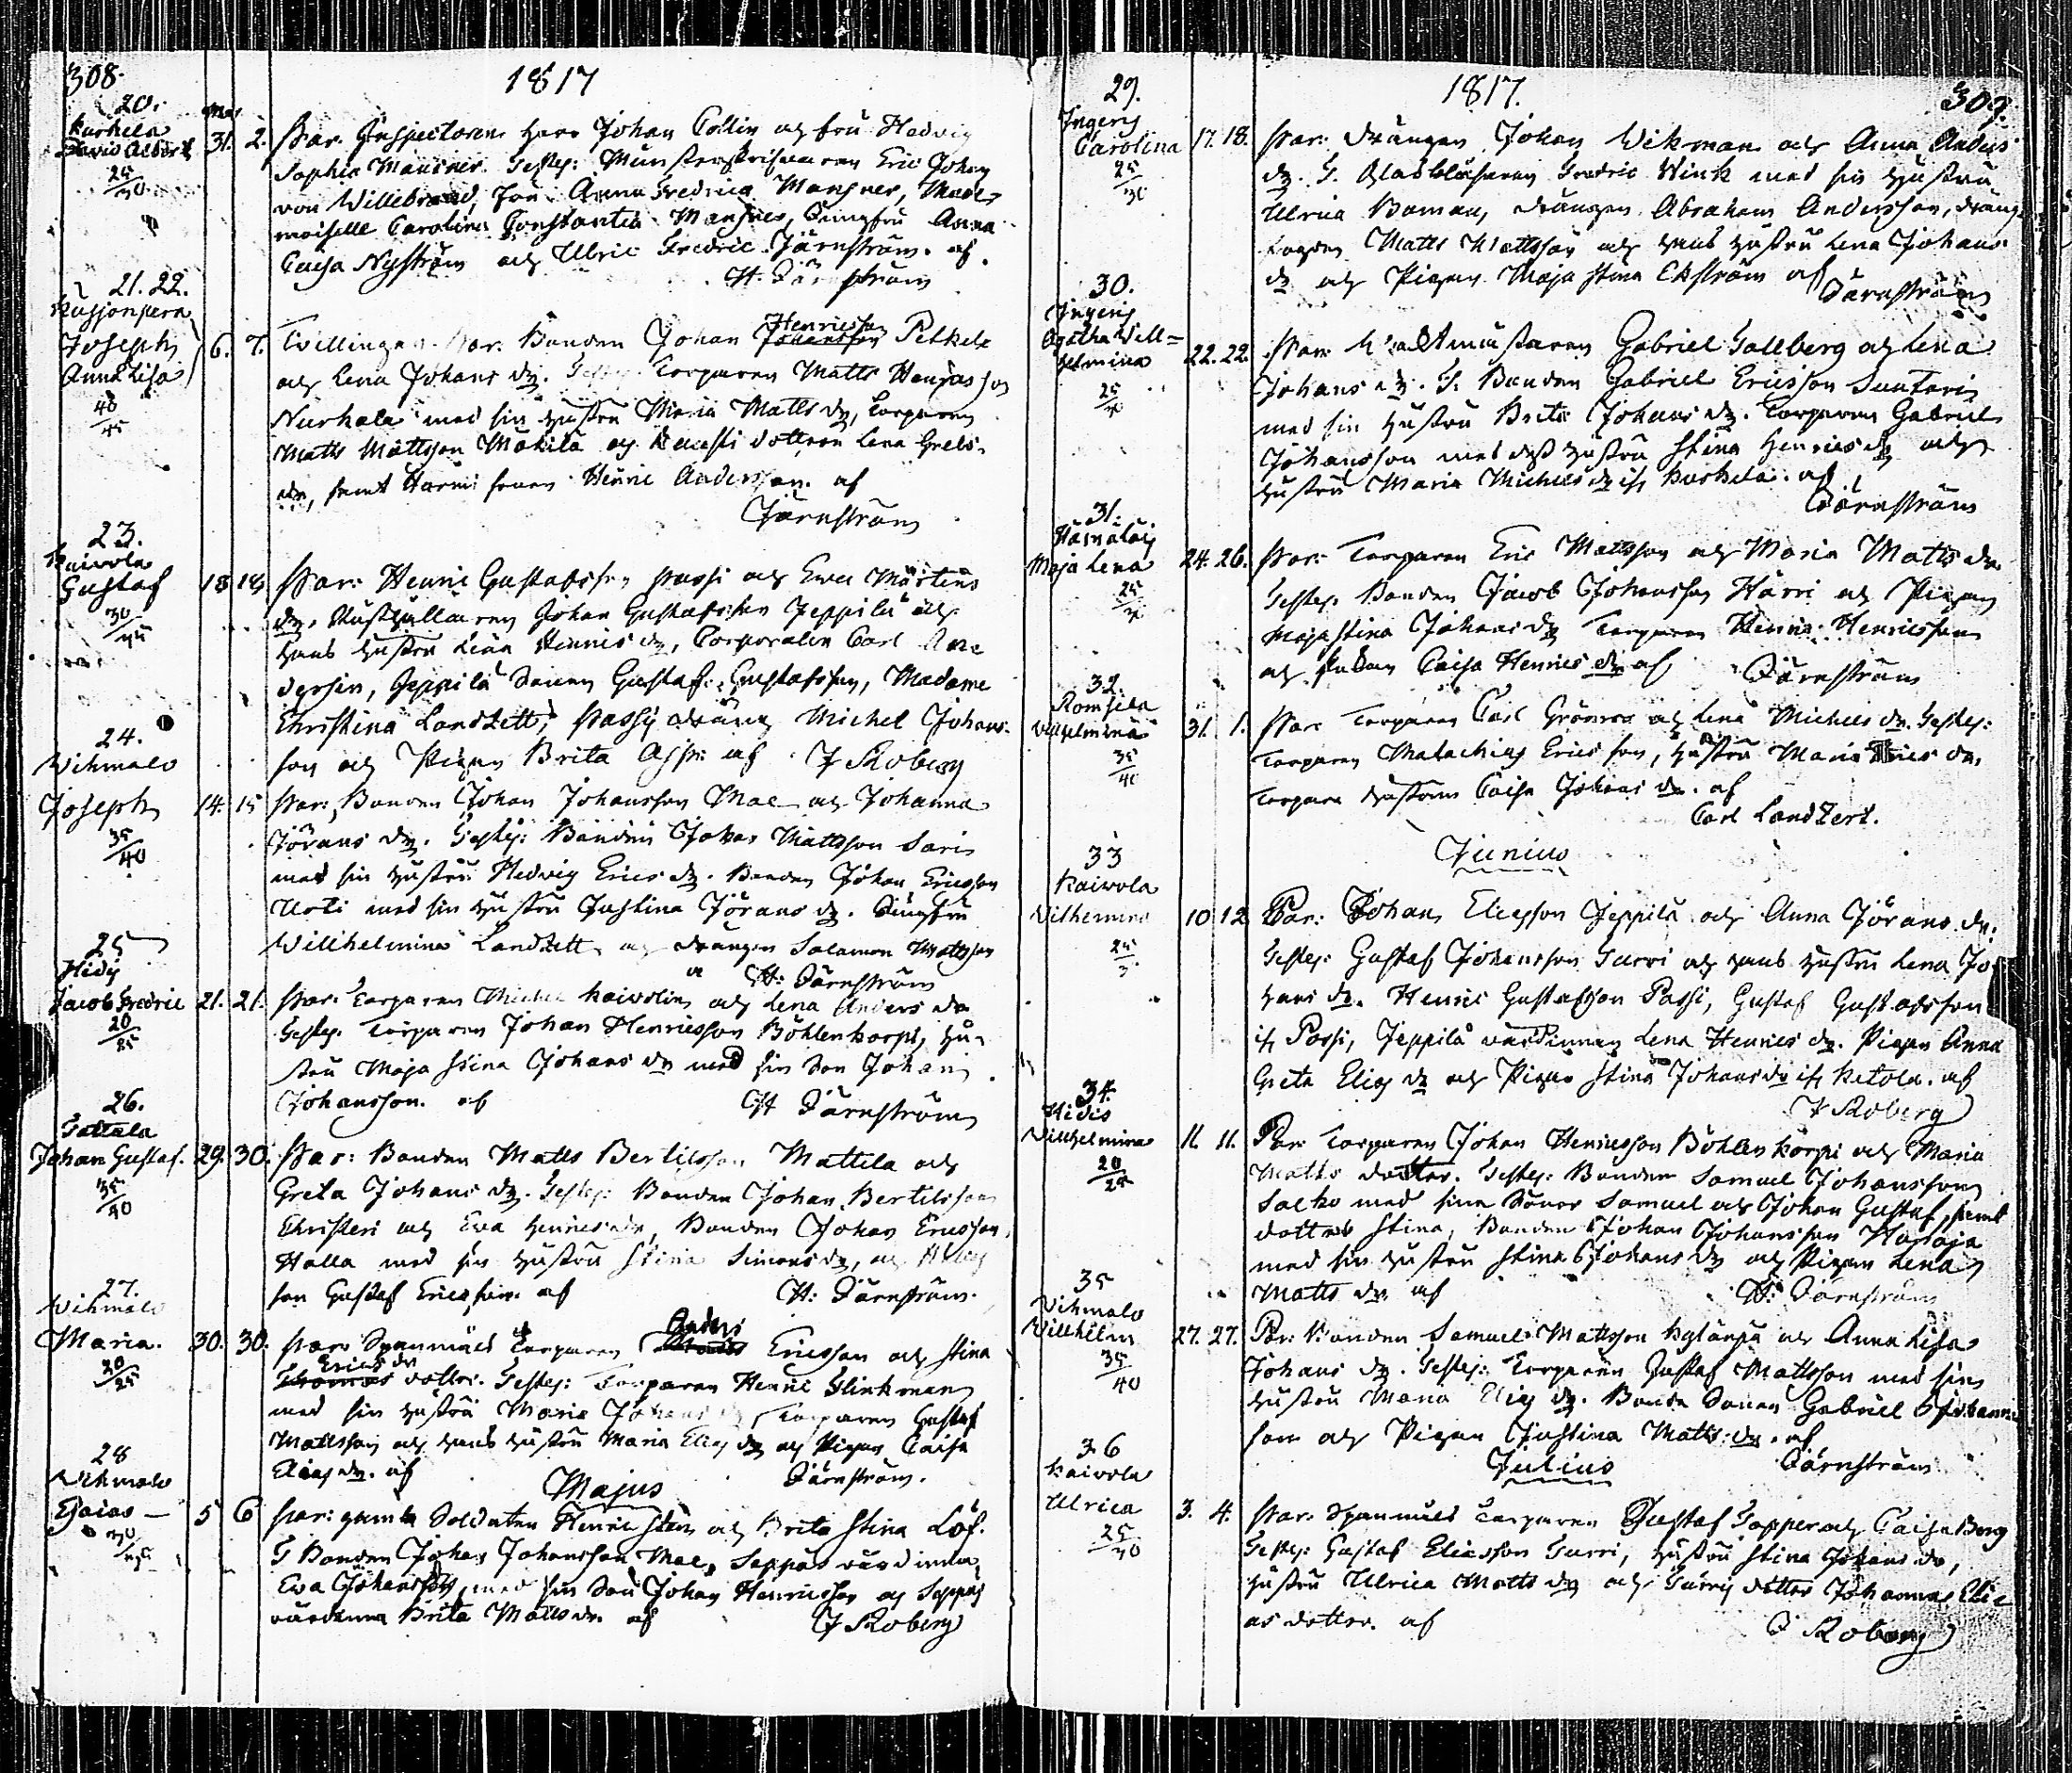 308.
1817
20.
Kurkela
David Albert 31. 2. Par. Inspectoren Herr Johan Collin och fru Hedvig
25/30
Sophia Mansner. Testes: Mönsterskrifvaren Eric Johan
von Willebrand, fru Anna Fredrica Mansner, Made-
moiselle Carolina Constantia Mansner, Jungfru Anna
Caisa Nyström och Ulric Fredric Järnström. af
H. Järnström
21. 22.
Joseph
Anna Lisa 6. 7. Tvillingar. Par. Bonden Johan Henricsson Johansson
40/45
och Lena Johans dr. Torparen Matts
med sin hustru Maria Matts dr, Torparen
Matts Mattsson Mäkilä och dottren Lena
dr, samt Henric Andersson. af
Järnström
23.
Kaivola
Gustaf 18 18 Par: Henric Gustafsson Passi och Ewa Mårtens
30/35
dr. Rusthållaren Johan Gustafsson Jeppilä och
hans hustru Lena Henrics dr, Corporalen Carl
Jeppilä Sonen Gustaf Gustafsson, Madame
Christina Landzett, Passi dräng Michel Johans-
son och Pigan Brita af J Roberg
24.
Vihmalo
Joseph 14. 15 Par: Bonden Johan Johansson Mae och Johanna
35/40
Jörans dr. Testes: Bonden Johan Mattsson Sari
med sin hustru Hedvig Erics dr. Bonden Johan Ericsson
Uoti med sin hustru Justina Jörans dr. Jungfru
Willhelmina Landzett och drängen Salomon Mattsson
af H. Järnström
25
Hidis
Jacob Fredric 21. 21. Par: Torparen Michel Kaivolin och Lena Anders dr
20/25
Testes. Torparen Johan Henricsson Böhlenkorpi, hu-
stru Maja Stina Johans dr med sin Son Johan
Johansson. af H Järnström
26.
Tattala
Johan Gustaf. 29. 30. Par: Bonden Matts Bertilsson Mattila och
35/40
Greta Johans dr. Testes: Bonden Johan Bertilsson
Christeri och Eva Henrics dr, Bonden Johan Ericsson
Halla med sin hustru Stina Simons dr, och
son Gustaf Ericsson. af H. Järnström.
27.
Vihmalo
Maria. 30. 30. Par: Spanmåls Torparen Anders Ericsson och Stina
20/25
Erics dr Thomas dotter. Testes: Torparen Henric Glinkman
med sin hustru Maria Johans dr, Torparen Gustaf
Mattsson och hans hustru Maria Elias dr och Pigan Caisa
Elias dr. af Järnström.
Majus
28
Vihmalo
Esaias — 5 6 Par: gamla Soldaten Henric Sten och Brita Stina Löf.
T. Bonden Johan Johansson Mae, Seppäs värdinna
Eva Johans dr, med sin Son Johan Henricsson och Seppäs
värdinna Brita Matts dr. af J Roberg
1817.
309.
29.
Ingeris
Carolina 17. 18. Par: drängen Johan Wikman och Anna Anders
25/30
dr. T. Glasblåsaren Fredric Wink med sin hustru
Ulrica Boman, drängen Abraham Andersson,
Matts Mattsson och hans hustru Lena Johans
dr och Pigan Maja Stina Ekström af Järnström
30.
Ingeris
Agatha Vill=
helmina 22. 22. Par: Gabriel Sallberg och Lena
Johans dr. T. Bonden Gabriel Ericsson Suntari
med sin hustru Brita Johans dr. Torparen Gabriel
Johansson med dess hustru Stina Henrics dr och
hustru Maria Michels dr if. Kurkela. af
Järnström
31.
Maja Lena 24. 26. Par: Torparen Eric Mattsson och Maria Matts dr.
Testes. Bonden Jacob Johansson Härri och Pigan
Maja Stina Johans dr Torparen Henric Henricsson
och Caisa Henrics dr af Järnström
32.
Romsila
Vilhelmina 31. 1. Par: Torparen Carl Grönroos och Lena Michels dr. Testes:
35/40
Torparen Malachias Ericsson, hustru Maria Erics dr,
Torpare hustrun Caisa Johans dr. af
Carl Landzert.
Junius
33
Kaivola
Vilhemina 10 12 Par: Johan Eliasson Jeppilä och Anna Jörans dr.
Testes: Gustaf Johansson Turri och hans hustru Lena Jo-
hans dr. Henric Gustafsson Passi, Gustaf Gustafsson
if. Passi, Jeppilä värdinnan Lena Henrics dr. Pigan Anna
Greta Elias dr och Pigan Stina Johans dr if. Ketola. af
J Roberg
34.
Hidis
Villhelmina 11. 11. Par: Torparen Johan Henricsson Böhlenkorpi och Maria
20/25
Matts dotter. Testes: Bonden Samuel Johansson
Salko med sina Söner Samuel och Johan Gustaf, samt
dotter Stina, Bonden Johan Johansson Haroja
med sin hustru Stina Johans dr och Pigan Lena
Matts dr. af H: Järnström
35
Vihmalo
Villhelm 27. 27. Par: Bonden Samuel Mattsson Kylänpä och Anna Lisa
35/40
Johans dr. Testes: Torparen Gustaf Mattsson med sin
hustru Maria Elias dr. Bonde Sonen Gabriel Johans-
son och Pigan Justina Matts dr. af
Järnström
Julius
36
Kaivola
Ulrica 3. 4. Par. Spanmåls Torparen Gustaf Topper och Caisa Berg
25/30
Testes: Gustaf Eliasson Turri, hustru Stina Johans dr,
hustru Ulrica Matts dr och Turris dotter Johanna Eli-
as dotter. af J Roberg